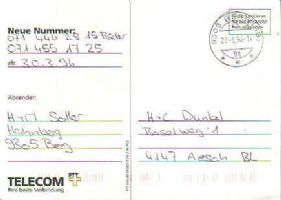 Neue Nummer:
071 446 28 15 Fischer
071 455 17 25
ab: 30.3.96
Absender:
H+M Sutter
9305 Berg
TELECOM PTT
Ihre beste Verbindung
H+C Dunkel
Baselweg 1
4147 Aesch BL